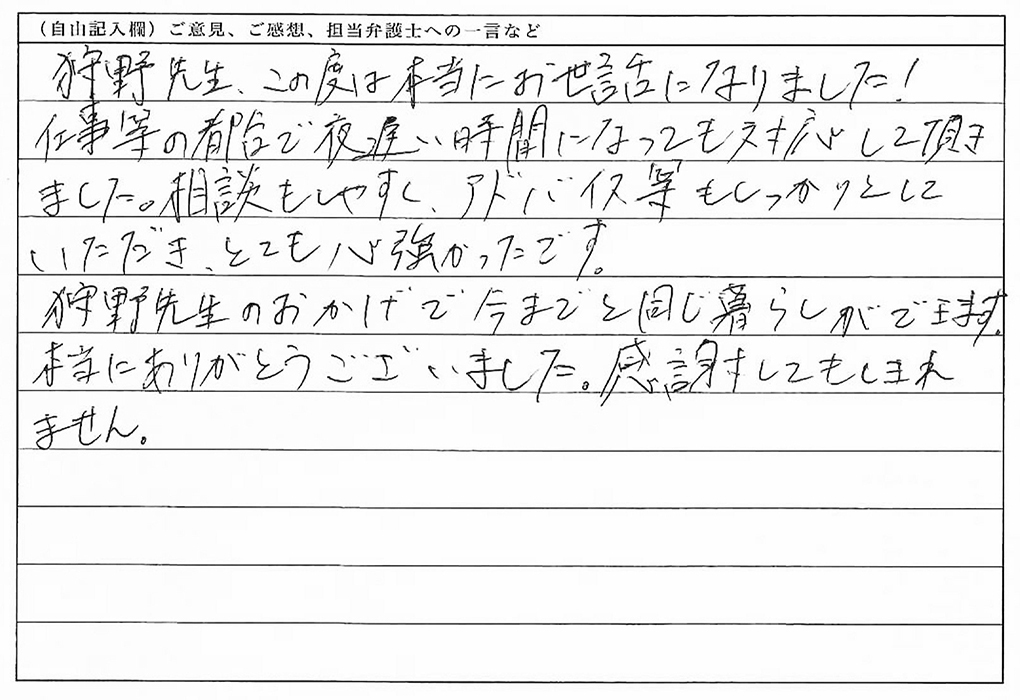 （自由記入欄）ご意見、ご感想、担当弁護士への一言など
狩野先生、この度は本当にお世話になりました！
仕事等の都合で夜遅い時間になっても対応して頂き
ました。相談もしやすく、アドバイス等もしっかりとして
いただき、とても心強かったです。
狩野先生のおかげで今までと同じ暮らしができます。
本当にありがとうございました。感謝してもしきれ
ません。